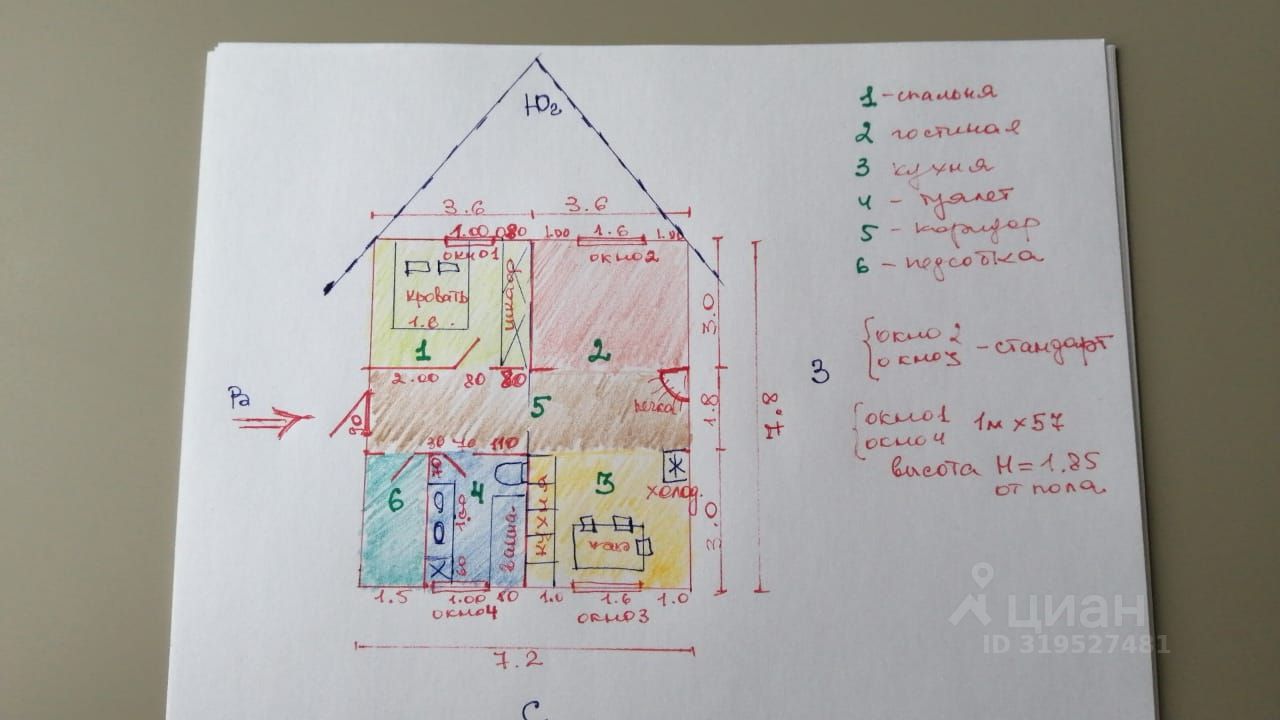 Юг
3.6
3.6
1.00
80
1.00
1.6
1.00
окно1
окно2
кровать
1.6
шкаф
1
2
3.0
2.00
80
80
5
печка
1.8
7.8
90
70
110
70
6
4
1.00
60
ванна
кухня
3
холод.
3.0
1.5
1.00
80
1.0
1.6
1.0
окно4
окно3
7.2
С
1 - спальня
2 гостиная
3 кухня
4 - туалет
5 - коридор
6 - подсобка
З
окно2
окно3 - стандарт
окно1
окно4 1м x 57
высота H = 1.85
от пола
циан
ID 319527481